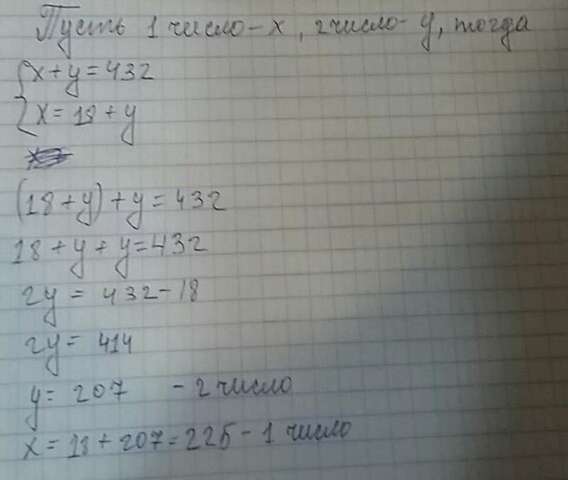 Пусть 1 число - x, 2 число - y, тогда
{x+y=432
{x=18+y
(18+y)+y=432
18+y+y=432
2y=432-18
2y=414
y=207 - 2 число
x=18+207=225 - 1 число